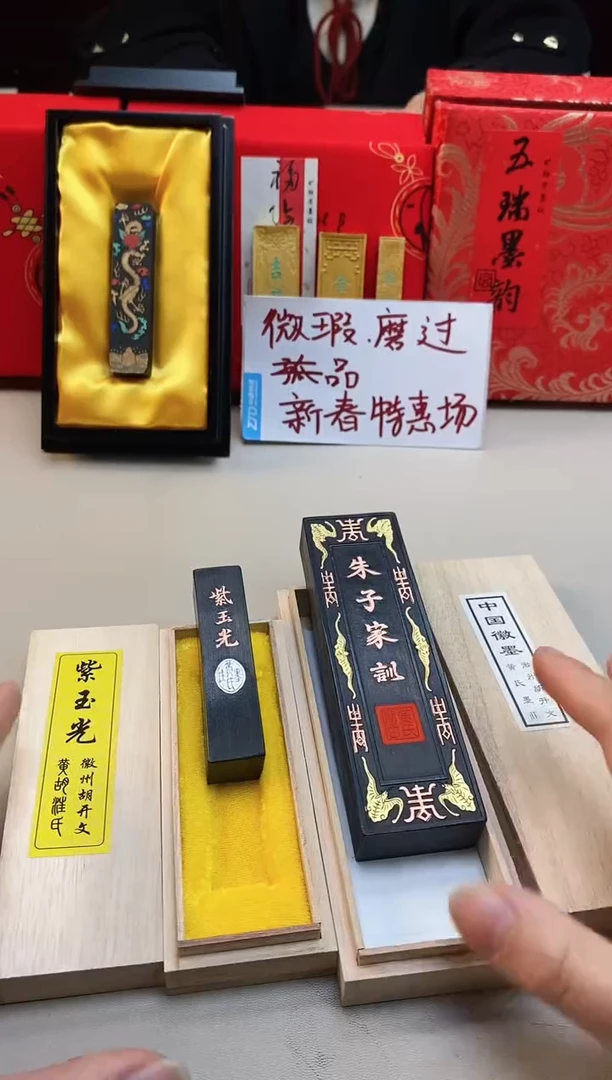 五瑞墨韵
福
吉
微瑕.磨过
孤品
新春特惠场
ZTO
紫玉光
朱子家訓
中国徽墨
黄氏墨
紫玉光
徽州胡开文